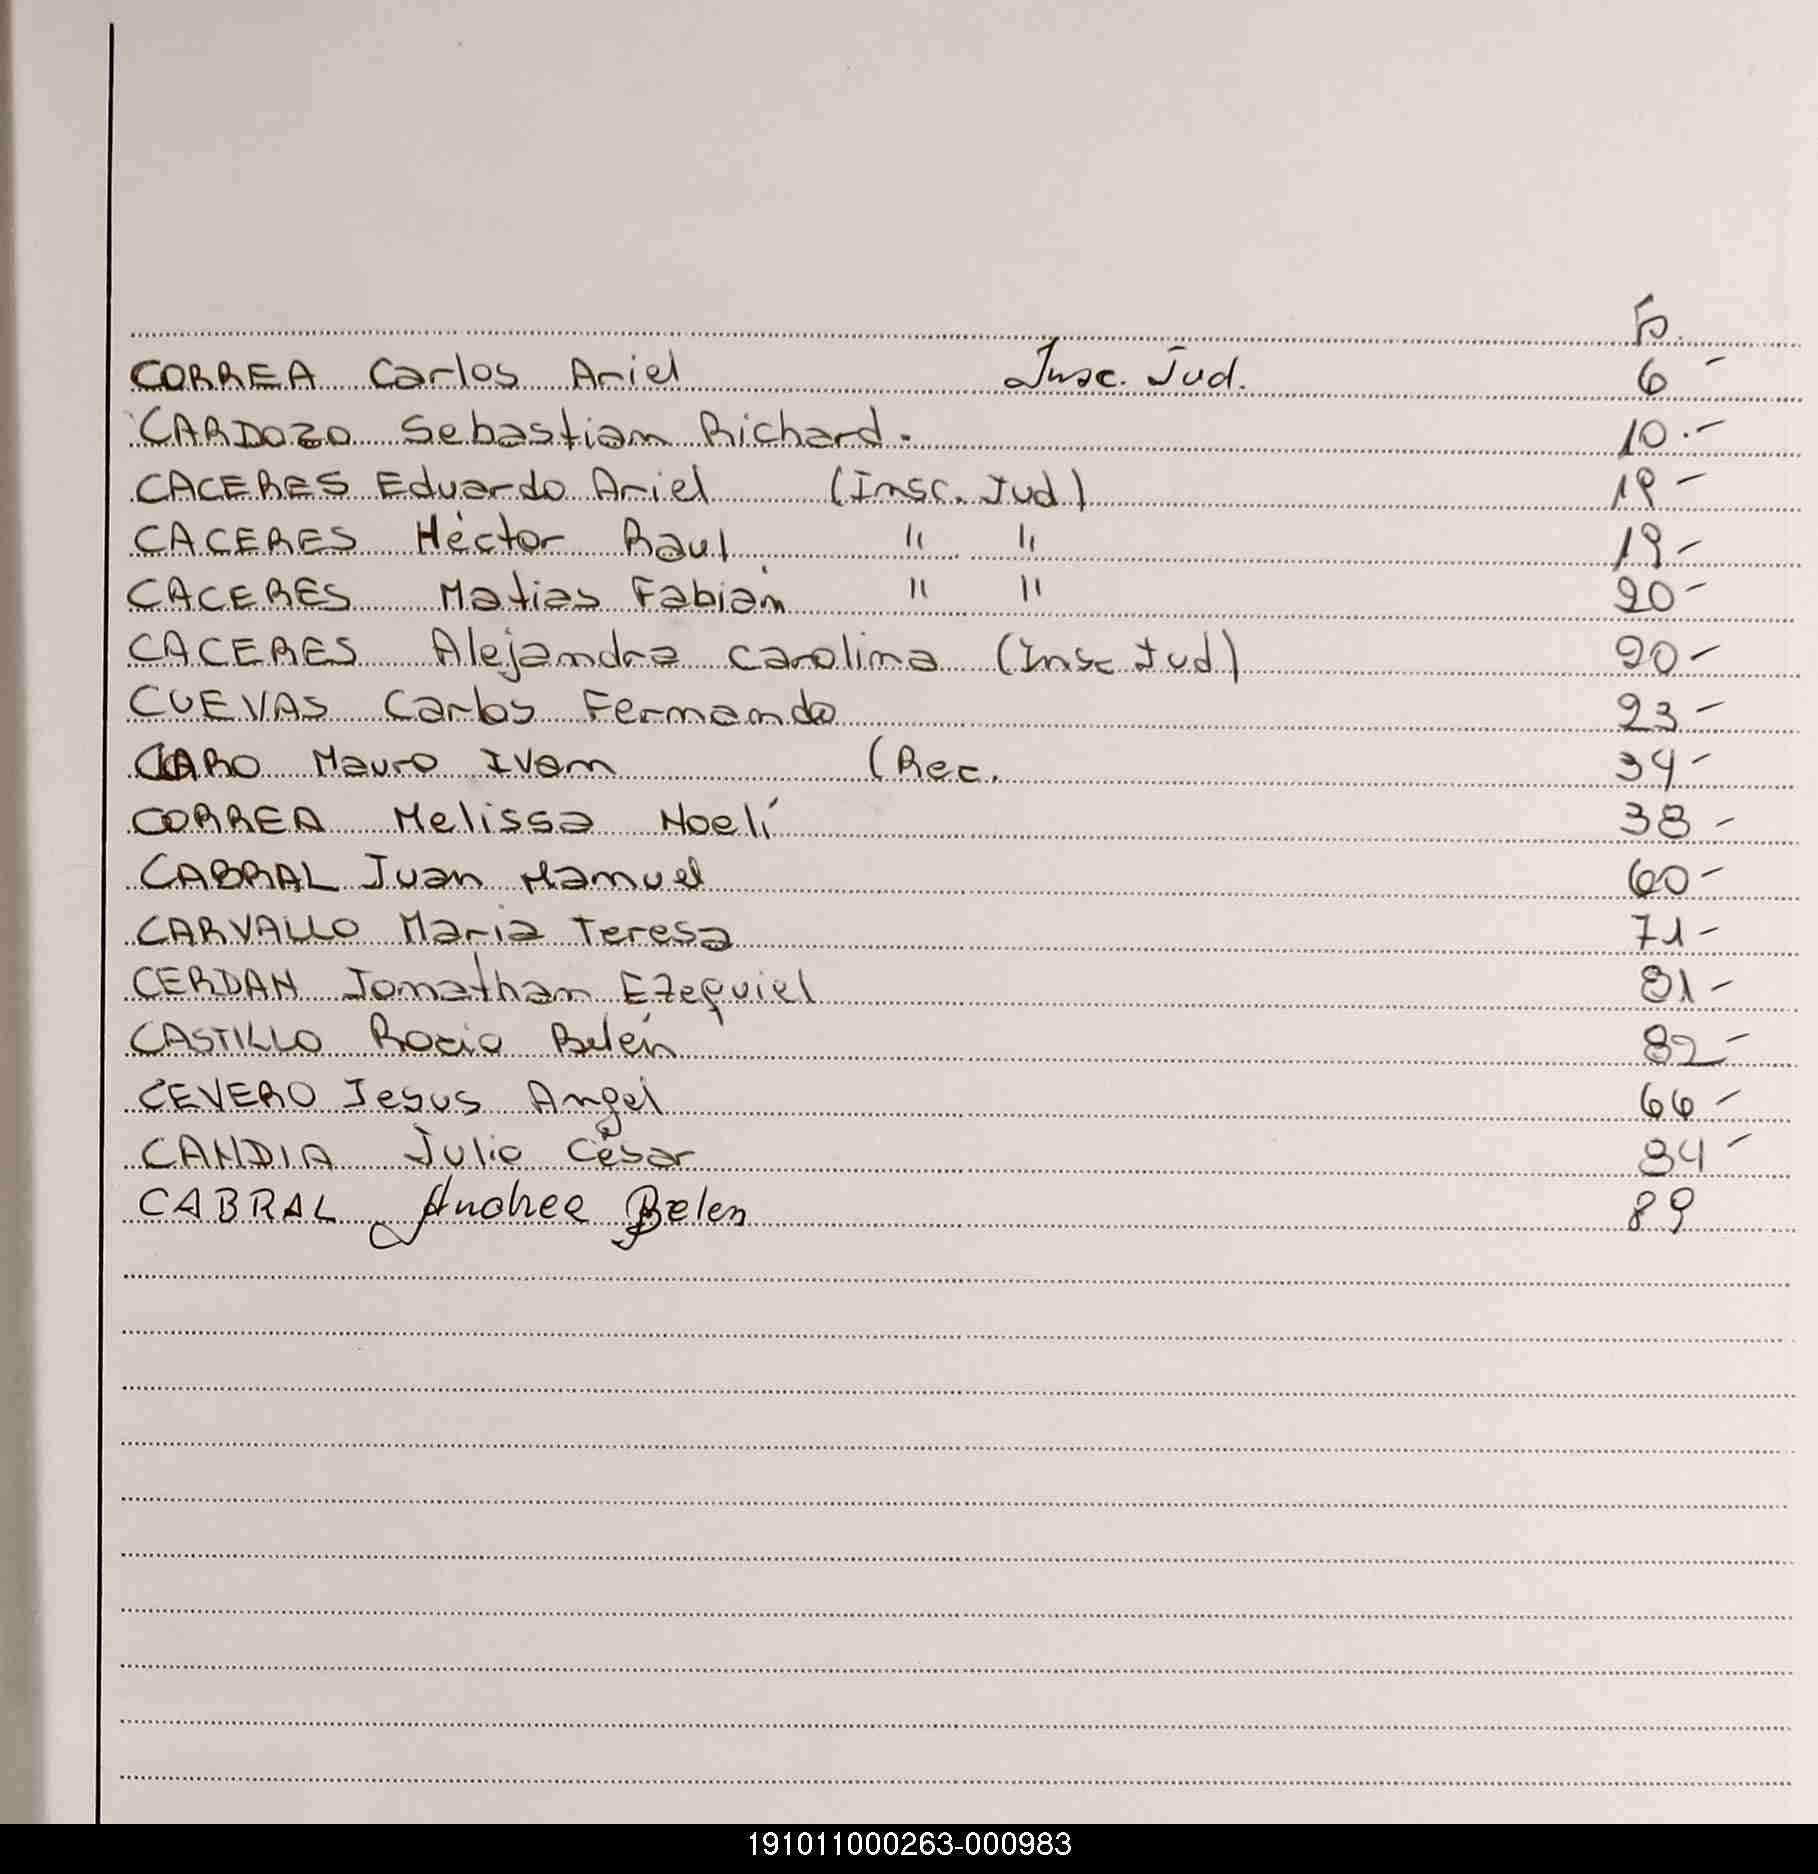 Fo.
CORREA Carlos Ariel Insc. Jud. 6 -
CARDOZO Sebastian Richard. 10.-
CACERES Eduardo Ariel (Insc. Jud) 19 -
CACERES Héctor Raul " " 19 -
CACERES Matias Fabián " " 20 -
CACERES Alejandra Carolina (Insc Jud) 20 -
CUEVAS Carlos Fernando 23 -
CARO Mauro Ivan (Rec. 34 -
CORREA Melissa Noelí 38 -
CABRAL Juan Manuel 60 -
CARVALLO Maria Teresa 71 -
CERDAN Jonathan Ezequiel 81 -
CASTILLO Rocio Belén 82 -
CEVERO Jesus Angel 66 -
CANDIA Julio César 84 -
CABRAL Andrea Belen 89
191011000263-000983